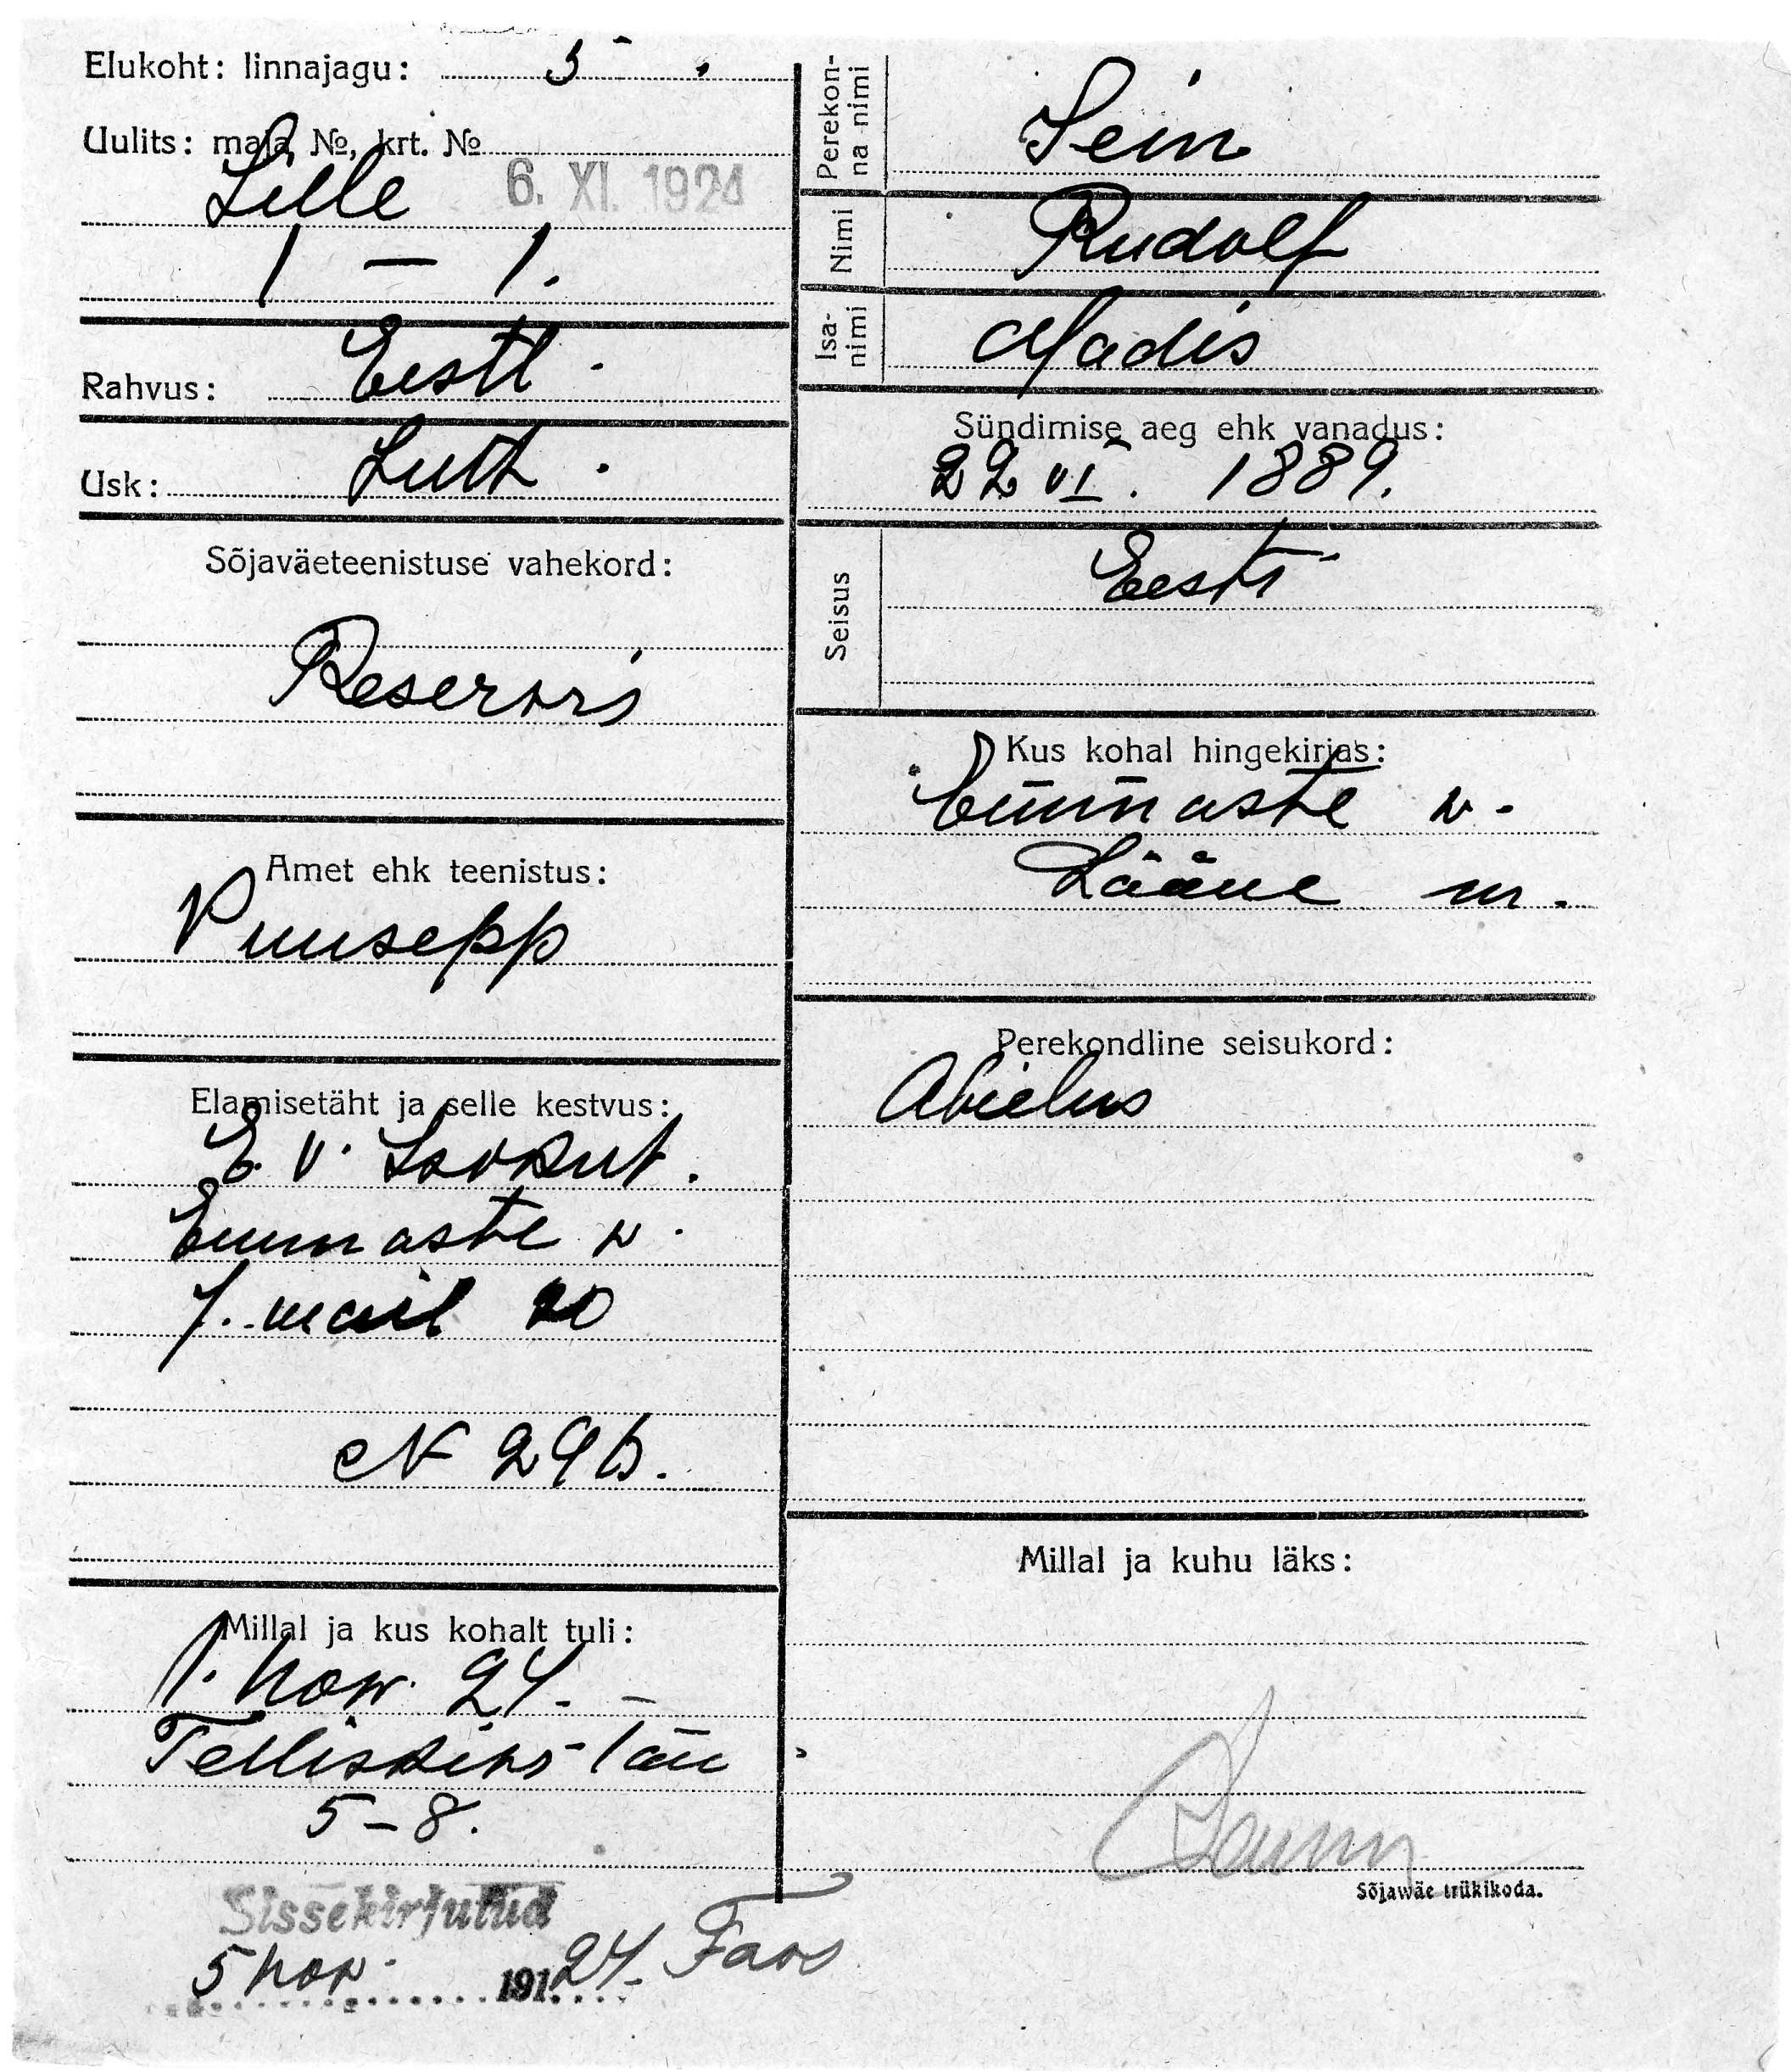 Elukoht: linnajagu: 5
Uulits: maja №, krt. №
Lille 6. XI. 1924
1 – 1.
Rahvus: Eestl.
Usk: Luth.
Sõjaväeteenistuse vahekord:
Reservis
Amet ehk teenistus:
Puusepp
Elamisetäht ja selle kestvus:
E. V. Isikut.
Emmaste w.
7. mail 20
N 296.
Millal ja kus kohalt tuli:
1. now. 24.
Telliskivi tän
5 – 8.
Sissekirjutud
5 nov. 191 24.
Perekonna nimi
Sein
Nimi
Rudolf
Isanimi
Madis
Sündimise aeg ehk vanadus:
22 VI. 1889.
Seisus
Eesti
Kus kohal hingekirjas:
Emmaste w.
Lääne m.
Perekondline seisukord:
Abielus
Millal ja kuhu läks:
Sõjawäe trükikoda.